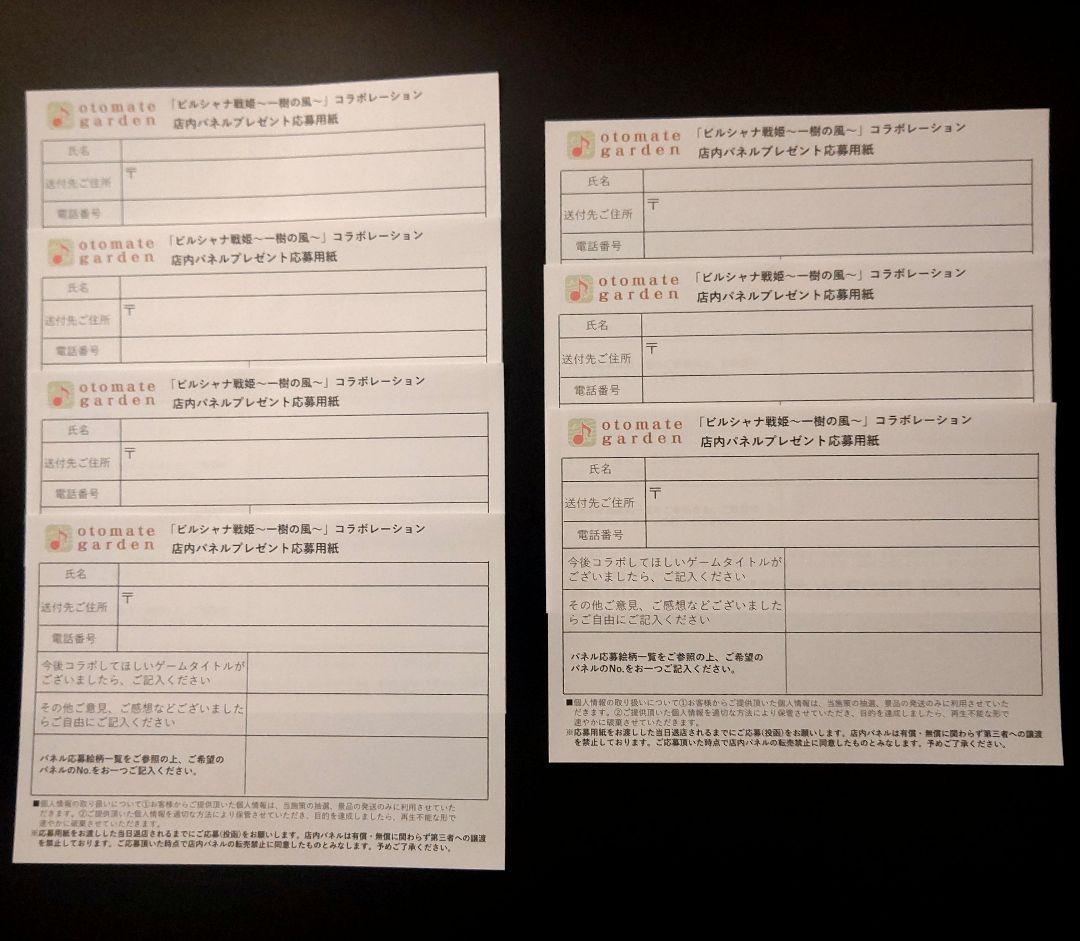 otomate garden
「ビルシャナ戦姫～一樹の風～」コラボレーション
店内パネルプレゼント応募用紙
氏名
送付先ご住所
〒
電話番号
otomate garden
「ビルシャナ戦姫～一樹の風～」コラボレーション
店内パネルプレゼント応募用紙
氏名
送付先ご住所
〒
電話番号
otomate garden
「ビルシャナ戦姫～一樹の風～」コラボレーション
店内パネルプレゼント応募用紙
氏名
送付先ご住所
〒
電話番号
otomate garden
「ビルシャナ戦姫～一樹の風～」コラボレーション
店内パネルプレゼント応募用紙
氏名
送付先ご住所
〒
電話番号
今後コラボしてほしいゲームタイトルが
ございましたら、ご記入ください
その他ご意見、ご感想などございました
らご自由にご記入ください
パネル応募絵柄一覧をご参照の上、ご希望の
パネルのNo.をお一つご記入ください。
■個人情報の取り扱いについて①お客様からご提供頂いた個人情報は、当施策の抽選、景品の発送のみに利用させていた
だきます。②ご提供頂いた個人情報を適切な方法により保管させていただき、目的を達成しましたら、再生不能な形で
速やかに破棄させていただきます。
※応募用紙をお渡しした当日退店されるまでにご応募(投函)をお願いします。店内パネルは有償・無償に関わらず第三者への譲渡
を禁止しております。ご応募頂いた時点で店内パネルの転売禁止に同意したものとみなします。予めご了承ください。
otomate garden
「ビルシャナ戦姫～一樹の風～」コラボレーション
店内パネルプレゼント応募用紙
氏名
送付先ご住所
〒
電話番号
otomate garden
「ビルシャナ戦姫～一樹の風～」コラボレーション
店内パネルプレゼント応募用紙
氏名
送付先ご住所
〒
電話番号
otomate garden
「ビルシャナ戦姫～一樹の風～」コラボレーション
店内パネルプレゼント応募用紙
氏名
送付先ご住所
〒
電話番号
今後コラボしてほしいゲームタイトルが
ございましたら、ご記入ください
その他ご意見、ご感想などございました
らご自由にご記入ください
パネル応募絵柄一覧をご参照の上、ご希望の
パネルのNo.をお一つご記入ください。
■個人情報の取り扱いについて①お客様からご提供頂いた個人情報は、当施策の抽選、景品の発送のみに利用させていた
だきます。②ご提供頂いた個人情報を適切な方法により保管させていただき、目的を達成しましたら、再生不能な形で
速やかに破棄させていただきます。
※応募用紙をお渡しした当日退店されるまでにご応募(投函)をお願いします。店内パネルは有償・無償に関わらず第三者への譲渡
を禁止しております。ご応募頂いた時点で店内パネルの転売禁止に同意したものとみなします。予めご了承ください。